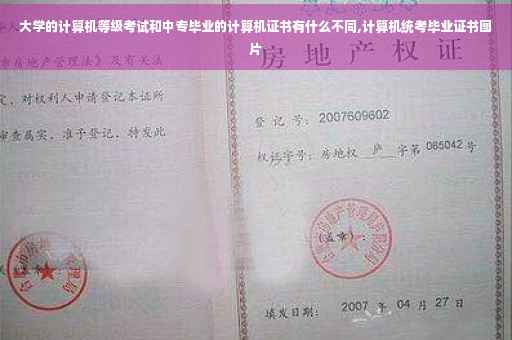 大学的计算机等级考试和中专毕业的计算机证书有什么不同,计算机统考毕业证书图
片
房 地 产 权 证
房地产管理法》及有关法
定，对权利人申请登记本证所
审查属实，准予登记，特发此
登 记 号：2007609602
权证字号：房地权 庐 字第 065042 号
（盖章）：
填发日期： 2007 年 04 月 27 日